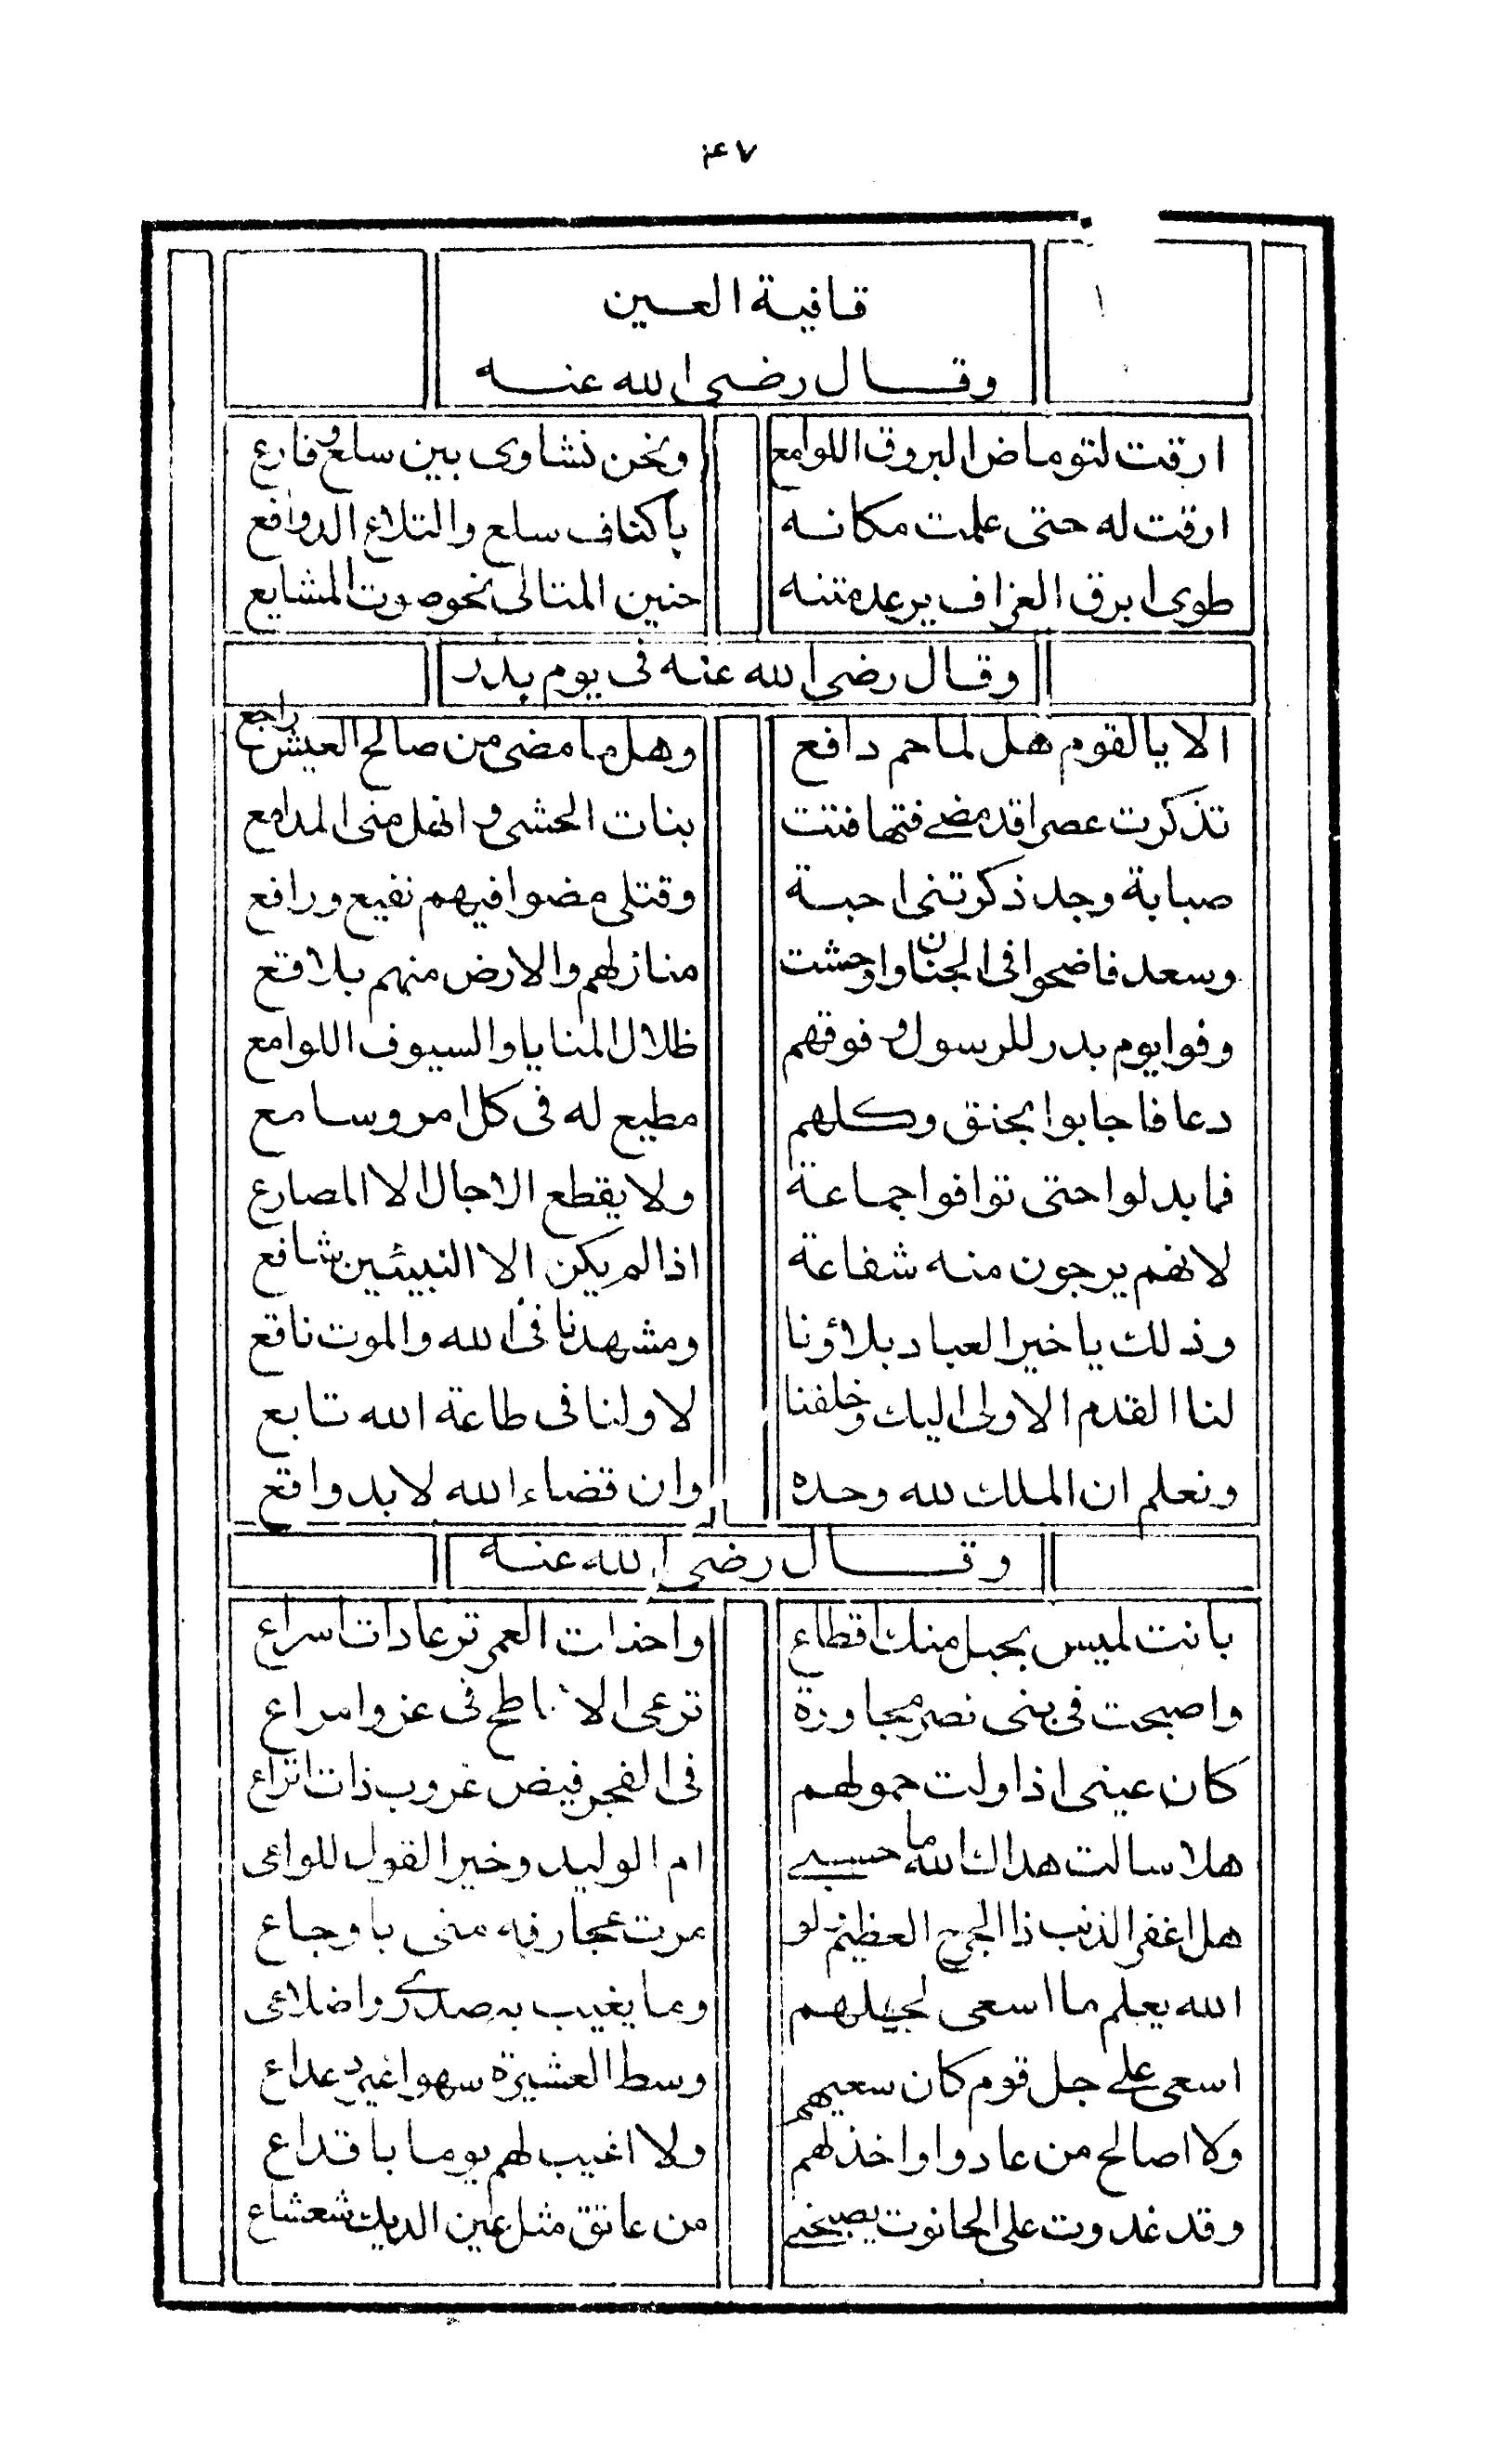 ۴۷
قافية العين
وقال رضى الله عنه
ارقت لتوماض البروق اللوامع ونحن نشاوى بين سلع وفارع
ارقت له حتى علمت مكانه بأكناف سلع والتلاع الدوافع
طوى ابرق العزاف يرعد متنه حنين المتالى نحو صوت المشايع
وقال رضى الله عنه فى يوم بدر
الا يا لقوم هل لما حم دافع وهل ما مضى من صالح العيش راجع
تذكرت عصرا قد مضے فتهافتت بنات الحشى وانهل منى المدامع
صبابة وجد ذكرتنى احبة وقتلى مضوا فيهم نفيع ورافع
وسعد فاضحوا فى الجنان واوحشت منازلهم والارض منهم بلاقع
وفوا يوم بدر للرسول وفوقهم ظلال المنايا والسيوف اللوامع
دعا فاجابوا بحنق وكلهم مطيع له فى كل امر وسامع
فما بدلوا حتى توافوا جماعة ولا يقطع الاجال الا المصارع
لانهم يرجون منه شفاعة اذا لم يكن الا النبيئين شافع
وذلك يا خير العباد بلاؤنا ومشهدنا فى الله والموت ناقع
لنا القدم الاولى اليك وخلفنا لاولنا فى طاعة الله تابع
ونعلم ان الملك لله وحده وان قضاء الله لا بد واقع
وقال رضى الله عنه
بانت لميس بحبل منك اقطاع واحذات العمر ترعا ذات اسراع
واصبحت فى بنى نصر مجاورة ترعى الاباطح فى عز وامراع
كان عينى اذا ولت حمولهم فى الفجر فيض غروب ذات اتراع
هلا سالت هداك الله ما حسبے ام الوليد وخير القول للواعى
هل اغفر الذنب ذا الجرح العظيم لو مرت عجارفه منى باوجاع
الله يعلم ما اسعى لجيلهم وما يغيب به صدرى واضلاعى
اسعى علے جل قوم كان سعيهم وسط العشيرة سهوا غير دعداع
ولا اصالح من عادوا واخذلهم ولا اغيب لهم يوما باقذاع
وقد غدوت على الحانوت يصبحنے من عاتق مثل عين الديك شعشاع